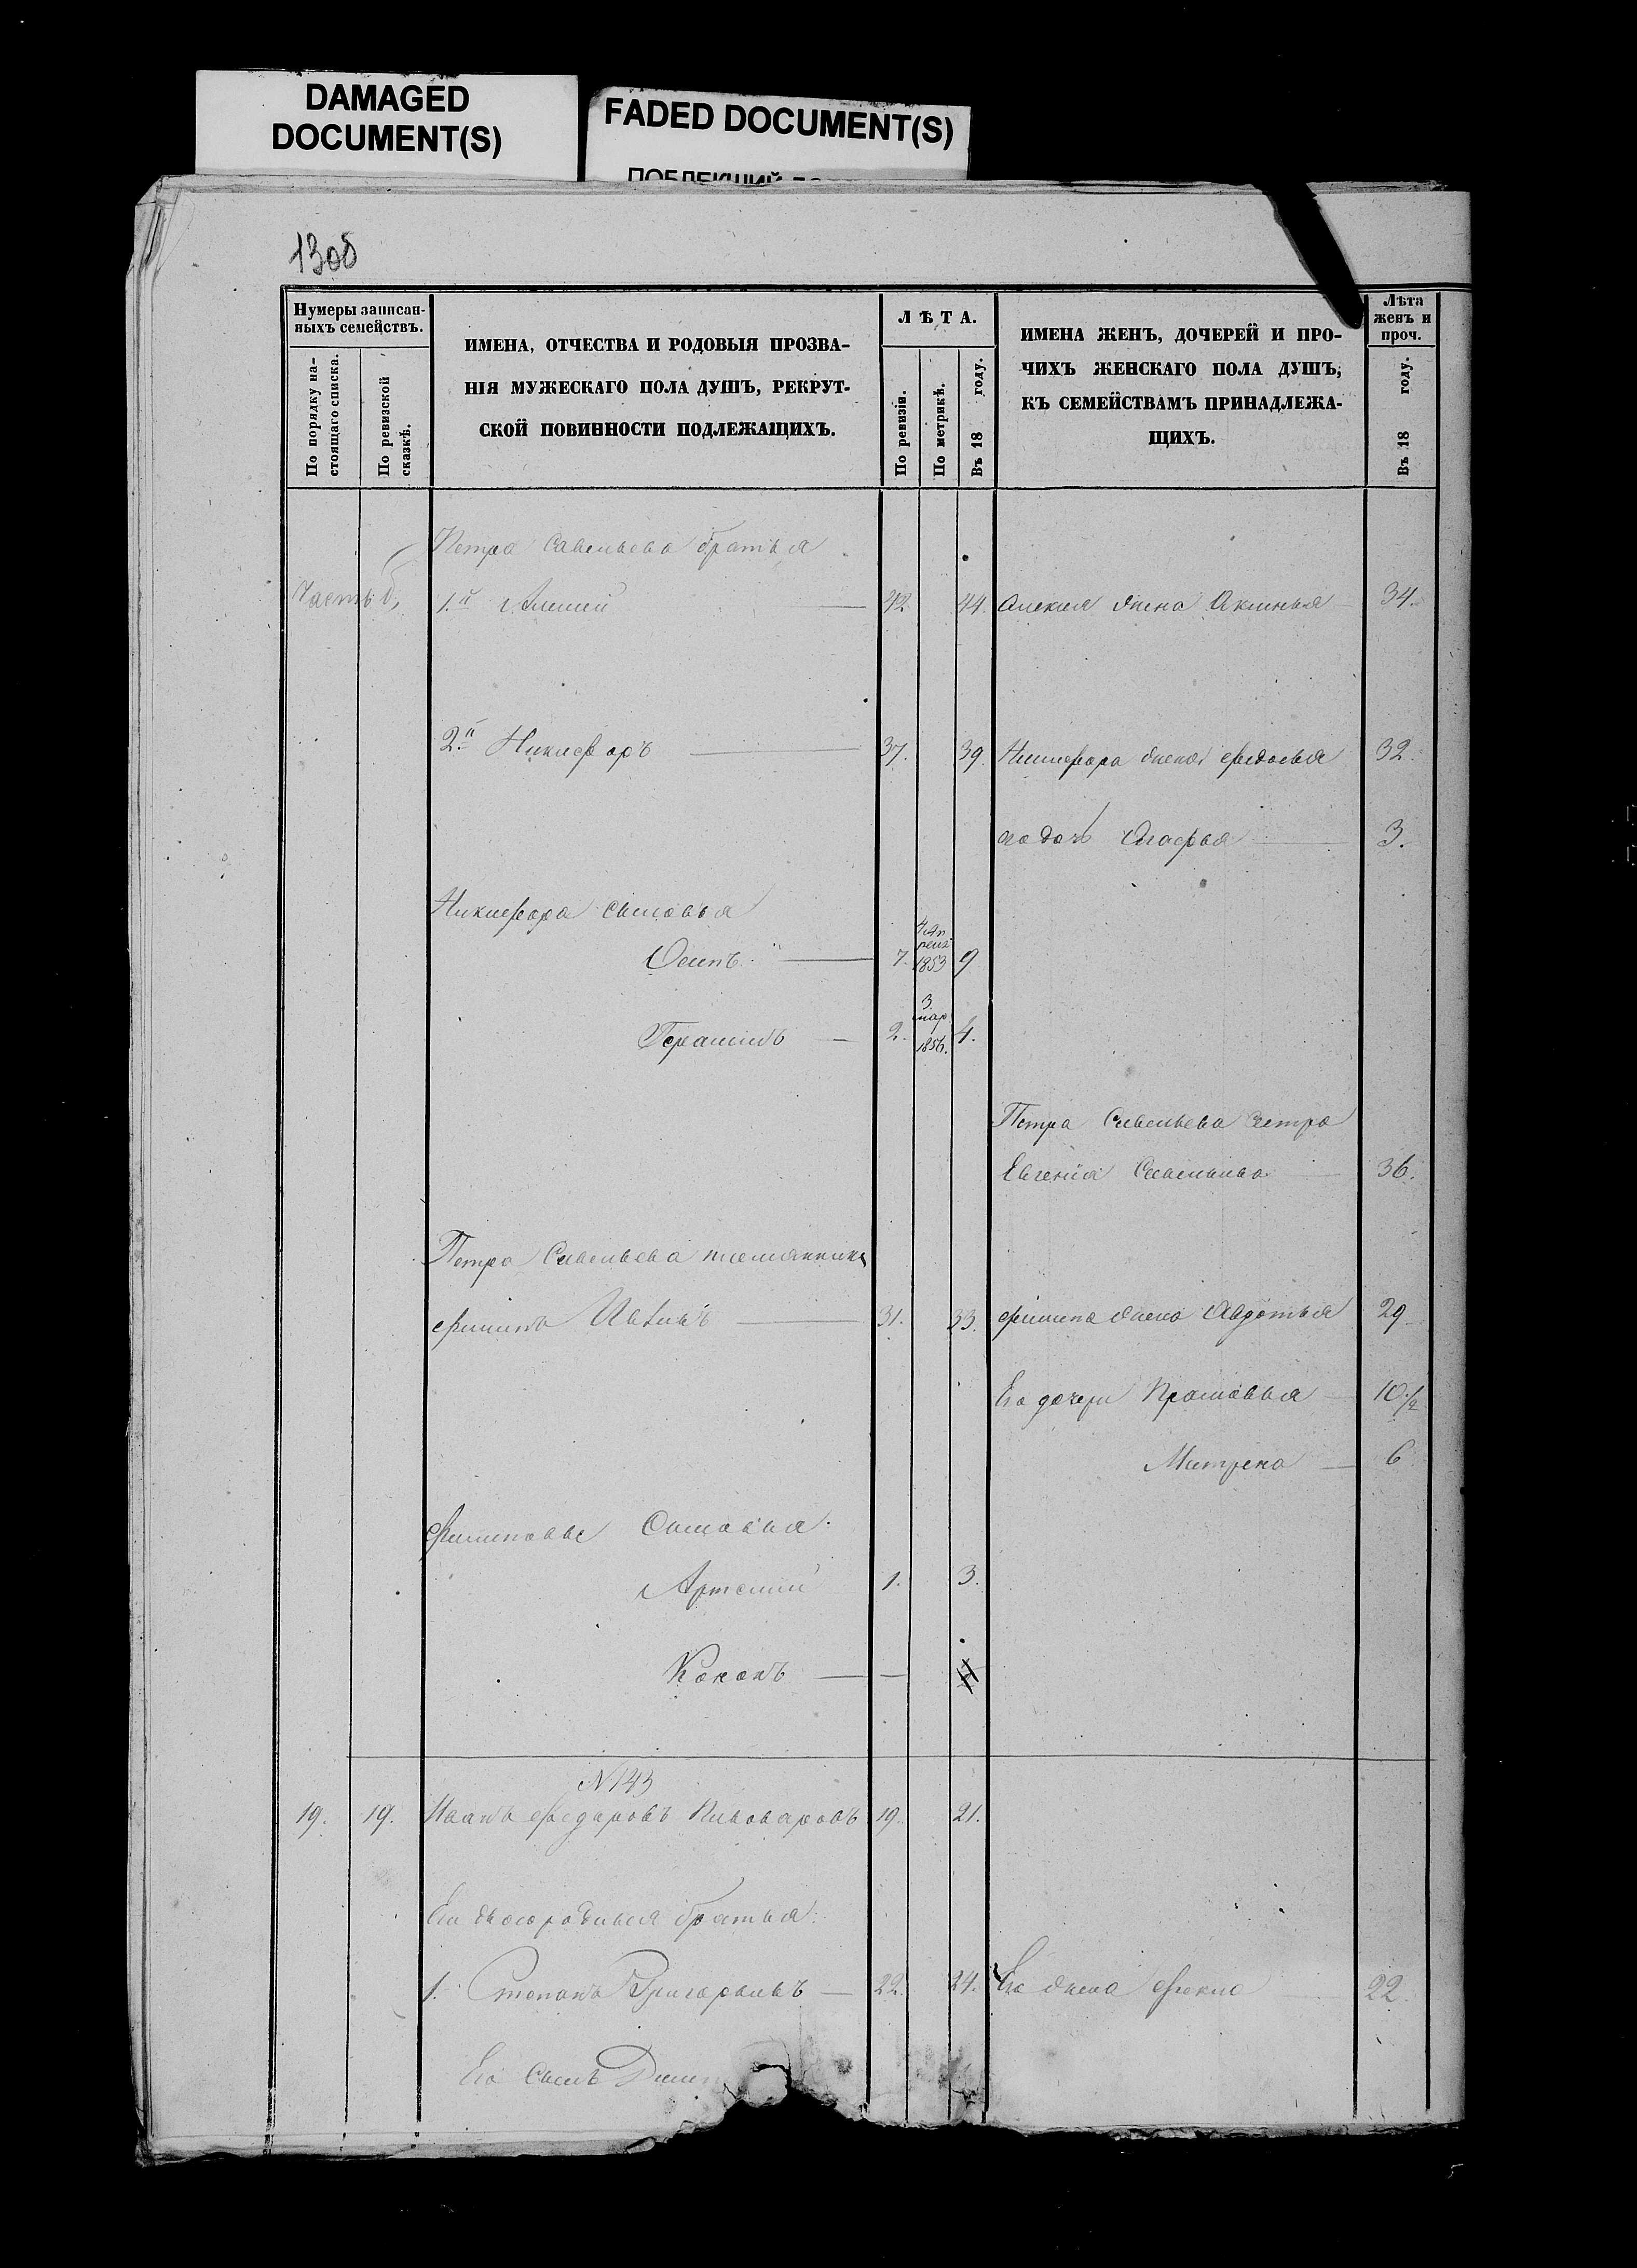 DAMAGED
DOCUMENT(S)
FADED DOCUMENT(S)
13об
Нумеры записан-
ныхъ семействъ.
По порядку на-
стоящаго списка.
По ревизской
сказкѣ.
ИМЕНА, ОТЧЕСТВА И РОДОВЫЯ ПРОЗВА-
НІЯ МУЖЕСКАГО ПОЛА ДУШЪ, РЕКРУТ-
СКОЙ ПОВИННОСТИ ПОДЛЕЖАЩИХЪ.
ЛѢТА.
По ревизіи.
По метрикѣ.
Въ 18 году.
ИМЕНА ЖЕНЪ, ДОЧЕРЕЙ И ПРО-
ЧИХЪ ЖЕНСКАГО ПОЛА ДУШЪ,
КЪ СЕМЕЙСТВАМЪ ПРИНАДЛЕЖА-
ЩИХЪ.
Лѣта
женъ и
проч.
Въ 18 году.
Петра Савельева братья
1.й 42. 44. жена Аксинья 34.
2.й Никифоръ 37. 39. Никифора жена Федосья 32.
его дочь Агафья 3.
Никифора сыновья
Осипъ 7. 1853 9
Герасимъ 2. 3 мар 1856. 4.
Петра Савельева сестра
Евгенія Савельева 36.
Петра Савельева племянникъ
Филипъ 31. 33. Филипа жена Авдотья 29
Его дочери Прасковья 10 1/2
Матрена 6
Филиповы Сыновья
Артемий 1. 3.
Кононъ
N 143
19. 19. Иванъ Федоровъ Пивоваровъ 19. 21.
Его двоюродныя братья
1. Степанъ Григорьевъ 22. 24. Его жена Фекла 22.
Его Сынъ